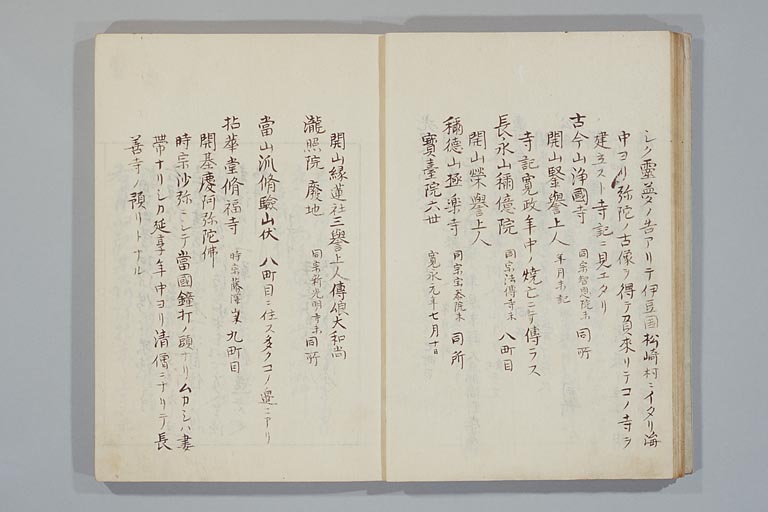 シノ靈夢ノ告アリテ伊豆國松崎村ニイタリ海
中ヨリ弥陀ノ古像ヲ得テ負來リテコノ寺ヲ
建立スト寺記ニ見エタリ
古今山浄國寺 同宗智恩院末 同所
開山堅譽上人 年月未記
寺記寛政年中ノ燒亡ニテ傳ラス
長永山稱億院 同宗法傳寺末 八町目
開山榮譽上人
稱徳山極楽寺 同宗宝泰院末 同所
寶臺院六世 寛永元年七月十日
開山縁蓮社三譽上人傳的大和尚
瀧照院 廃地 同宗新光明寺末 同所
當山派脩驗山伏 八町目ニ住ス多クコノ邉ニアリ
拈華堂脩福寺 時宗藤澤末 九町目
開基慶阿弥陀佛
時宗沙弥ニシテ當國鐘打ノ頭ナリムカシハ妻
帶ナリシカ延享年中ヨリ清僧ニナリテ長
善寺ノ預リトナル